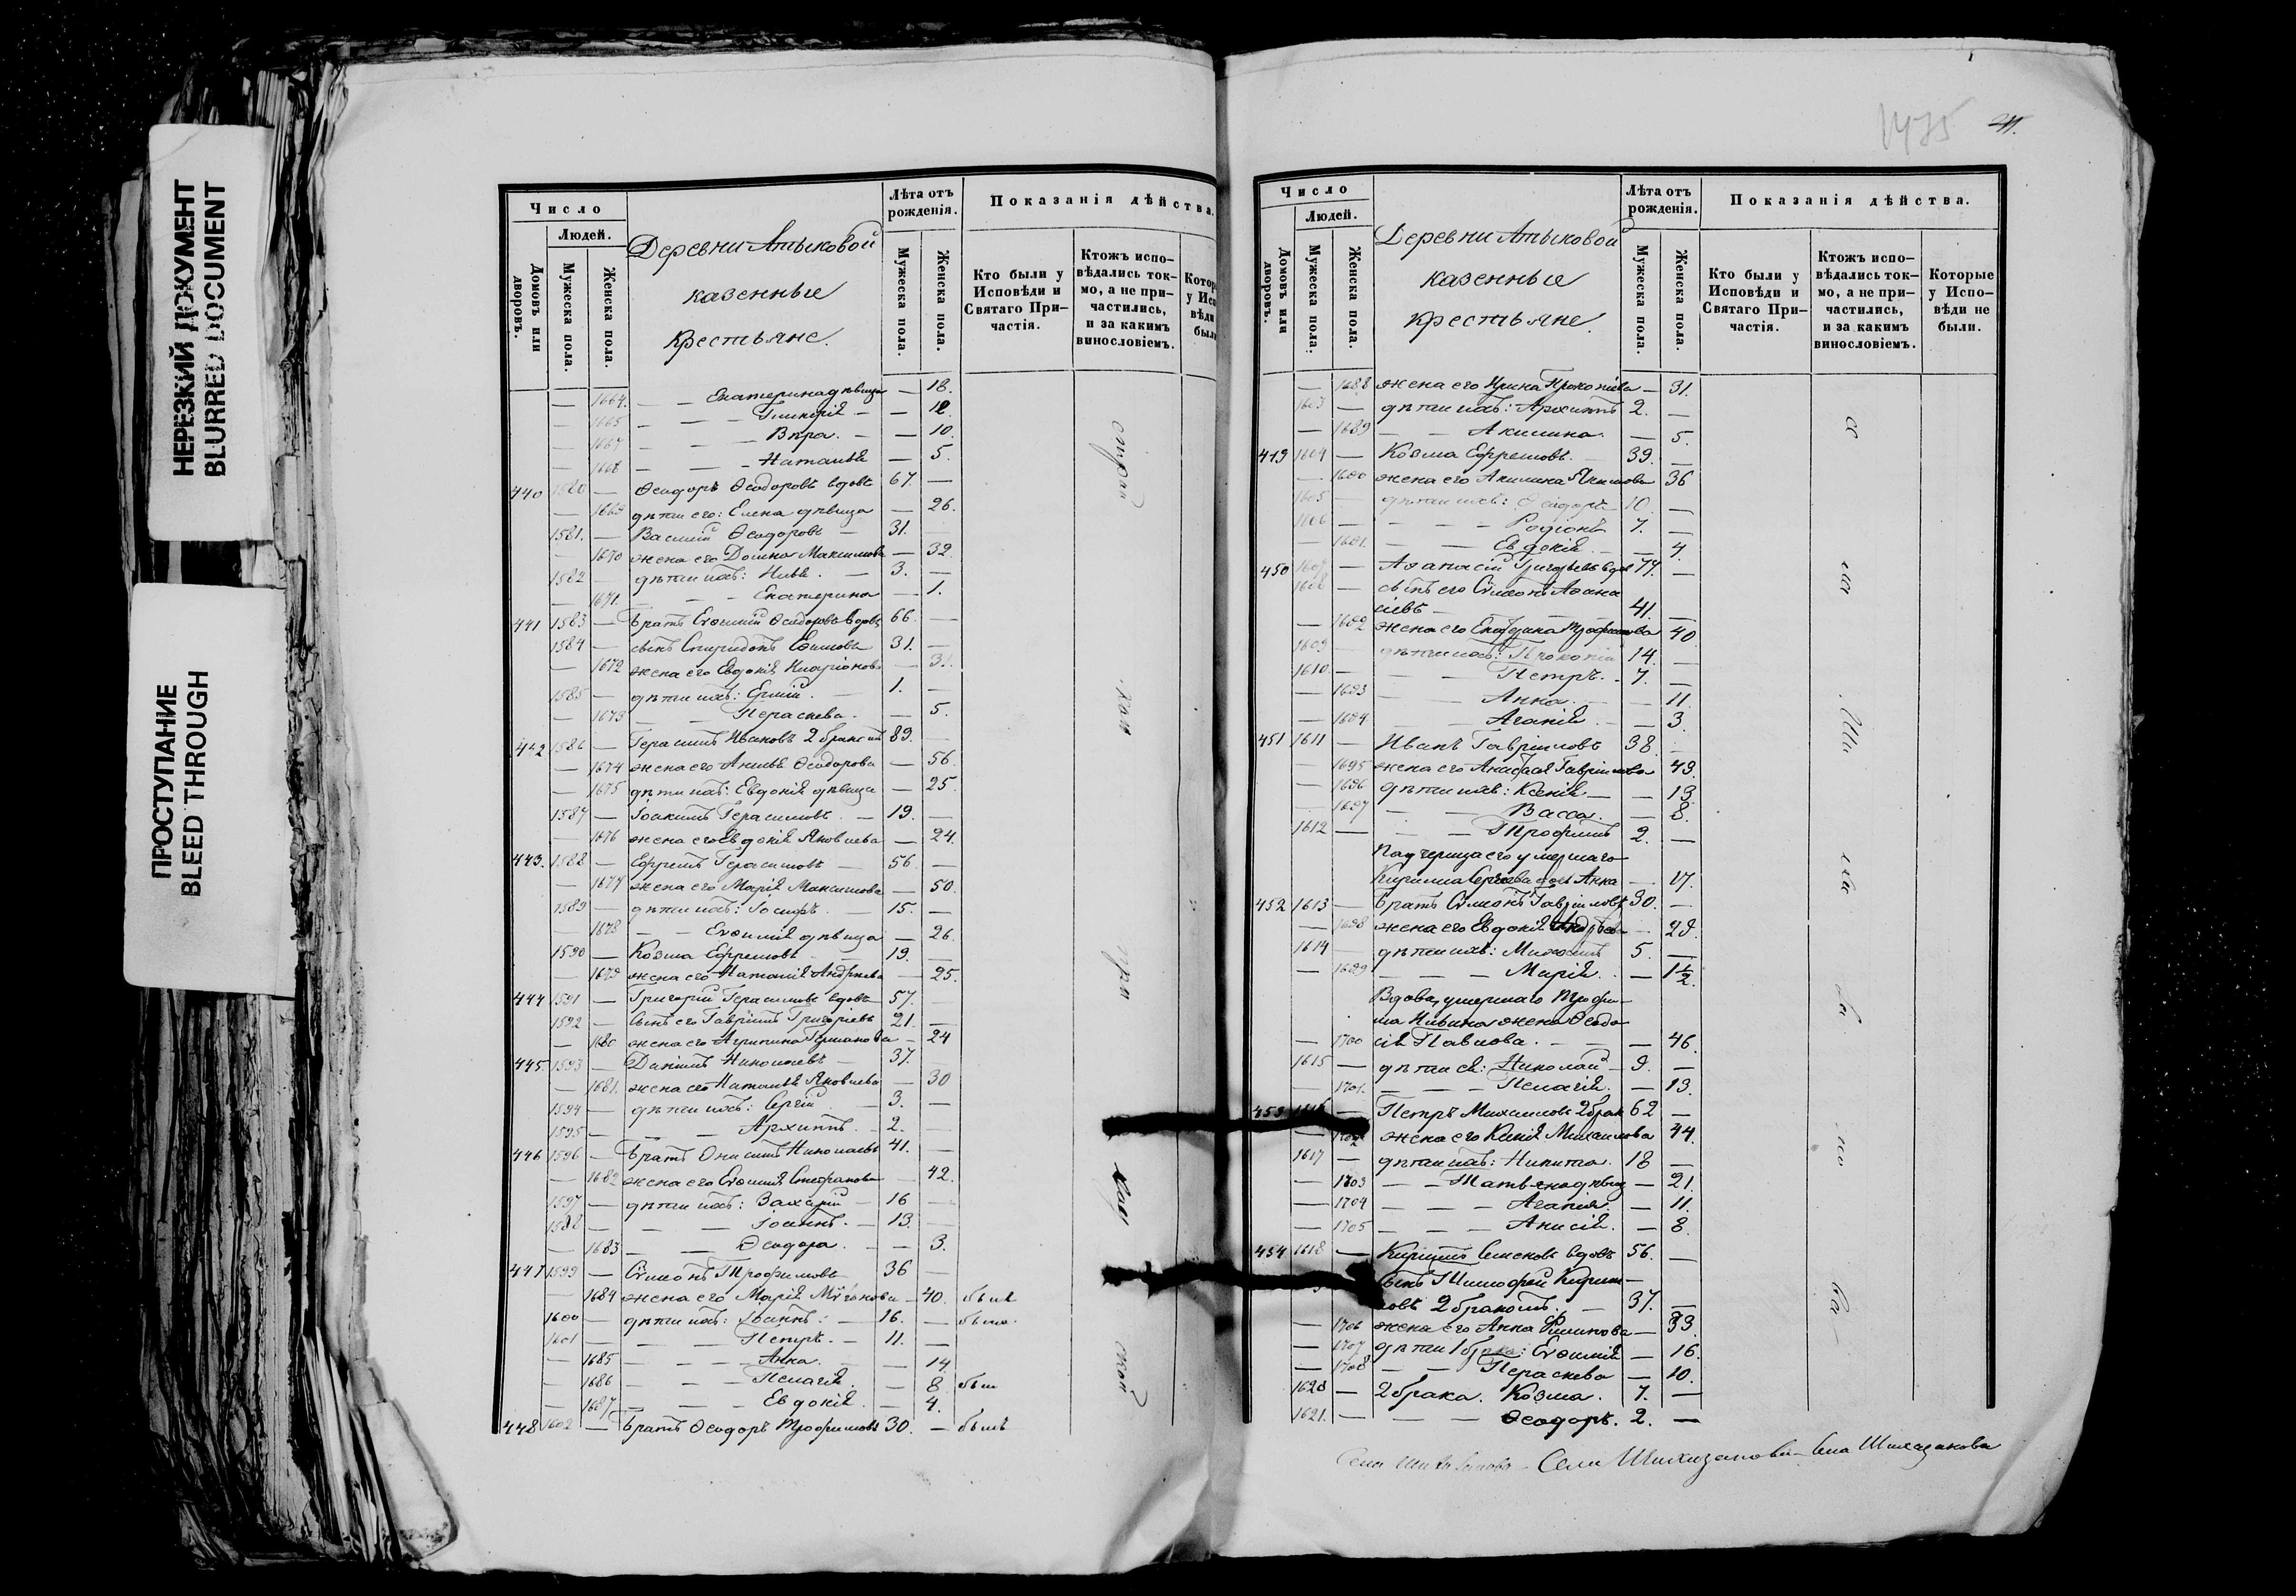 НЕРЕЗКИЙ ДОКУМЕНТ
BLURRED DOCUMENT
ПРОСТУПАНИЕ
BLEED THROUGH
Число
Людей.
Домовъ или дворовъ.
Мужеска пола.
Женска пола.
Деревни Атыковой
казенные
крестьяне.
Лѣта отъ рожденія.
Мужеска пола.
Женска пола.
Показанія дѣйства.
Кто были у Исповѣди и Святаго Причастія.
Ктожъ исповѣдались токмо, а не причастились, и за какимъ винословіемъ.
1664. — — Екатерина дѣвица — 18.
1665 — — — 12.
1667 — — Вѣра. — 10.
1668 — — Наталія — 5.
440 1580 — Ѳеодоръ Ѳеодоровъ вдовъ 67. —
— 1669 дѣти его: Елена дѣвица — 26.
1581. — Василій Ѳеодоровъ — 31.
— 1670 жена его Домна Максимова — 32.
1582 — дѣти ихъ: — 3. —
— 1671. — — Екатерина — 1.
441 1583 — братъ Евѳимій Ѳеодоровъ вдовъ 66. —
1584 — сынъ Спиридонъ Евѳимовъ 31. —
— 1672 жена его Евдокія — 31.
1585 — дѣти ихъ: — 1. —
— 1673 — — Параскева. — 5.
442 1586 — Герасимъ Ивановъ 2 бракомъ 89. —
— 1674 жена его Ѳеодорова — 56.
— 1675 дѣти ихъ: Евдокія дѣвица — 25.
1587 — Іоакимъ Герасимовъ. — 19. —
— 1676 жена его Евдокія Яковлева — 24.
443. 1588 — Ефремъ Герасимовъ — 56 —
— 1677 жена его Марія Максимова — 50.
1589 — дѣти ихъ: Іосифъ. — 15. —
— 1678 — — Евѳимія дѣвица — 26.
1590 — Козма Ефремовъ — 19. —
— 1679 жена его Наталія Андреева — 25.
444 1591 — Григорій Герасимовъ вдовъ 57. —
1592 — сынъ его Гавріилъ Григорьевъ 21. —
— 1680 жена его Агрипина Германова — 24
445. 1593 — Даніилъ Николаевъ — 37.
— 1681. жена его Наталія Яковлева — 30
1594 — дѣти ихъ: Сергій — 3. —
1595 — — — Архиппъ. — 2. —
446 1596 — братъ Онисимъ Николаевъ 41. —
— 1682 жена его Евѳимія Стефанова — 42.
1597 — дѣти ихъ: Захарій — 16 —
1598 — — Іоаннъ. — 13. —
— 1683 — — Ѳеодора. — — 3.
447 1599 — Симонъ Трофимовъ 36 —
— 1684 жена его Марія — 40. была
1600 — дѣти ихъ: Іоаннъ: — 16. — былъ.
1601 — — Петръ. — 11. —
— 1685 — — — Анна. — 14
— 1686 — — — Пелагія. — 8 была
— 1687 — — — Евдокія. — 4.
448 1602 — братъ Ѳеодоръ Трофимовъ 30. — былъ
1475
Число
Людей.
Домовъ или дворовъ.
Мужеска пола.
Женска пола.
Деревни Атыковой
казенные
крестьяне.
Лѣта отъ рожденія.
Мужеска пола.
Женска пола.
Показанія дѣйства.
Кто были у Исповѣди и Святаго Причастія.
Ктожъ исповѣдались токмо, а не причастились, и за какимъ винословіемъ.
Которые у Исповѣди не были.
— 1688 жена его Ирина Прокопіева — 31.
1603 — дѣти ихъ: Архиппъ 2. —
— 1689 — — Акилина. — 5.
449 1604 — Козма Ефремовъ. — 39. —
— 1690 жена его Акилина Якимова 36
1605 — дѣти ихъ: Ѳеодоръ 10. —
1606 — — — Родіонъ 7. —
— 1691. — — Евдокія — 4.
450 1607 — Аѳанасій Григорьевъ вдов 77. —
1608 — сынъ его Симонъ Аѳана
сіевъ — 41. —
— 1692 жена его Екатерина Трофимова 40
1609 — дѣти ихъ: Прокопій 14. —
1610 — — Петръ. — 7. —
— 1693 — Анна. — — 11
— 1694 — Агапія — — 3.
451 1611 — Иванъ Гавріиловъ 38. —
— 1695 жена его Анастасія Гавріилова 43.
— 1696 дѣти ихъ: Ксенія — — 13.
— 1697 — — Васса. — 8.
1612 — — — Трофимъ 2. —
Падчерица его умершаго
Кирилла Сергѣева дочь Анна — 17.
452 1613 — братъ Симонъ Гавріиловъ 30. —
— 1698 жена его Евдокія Андреева — 28.
1614 — дѣти ихъ: Михаилъ 5. —
— 1699 — — — Марія. — 1½.
Вдова, умершаго Трофи-
ма жена Ѳеодо-
— 1700 сія Павлова. — — — 46.
1615 — дѣти ея: Николай — 9. —
— 1701. — — — Пелагія. — 13.
453 1616 — Петръ Михаиловъ 2 брак 62 —
— 1702 жена его Ксенія Михаилова 44.
1617 — дѣти ихъ: Никита. 18 —
— 1703 — — Татьяна дѣвиц — 21.
— 1704 — — — Агапія. — 11.
— 1705 — — — Анисія. — 8.
454 1618 — Кириллъ Семеновъ вдовъ 56. —
сынъ Тимофей Кирил-
ловъ 2 бракомъ. — 37. —
— 1706 жена его Анна Филипова — 33.
— 1707 дѣти 1 брака: Евѳимія — 16.
— 1708 — — Параскева — 10.
1620 — 2 брака. Козма. 7. —
1621. — — — Ѳеодоръ. 2. —
Села Шихазанова — Села Шихазанова — Села Шихазанова